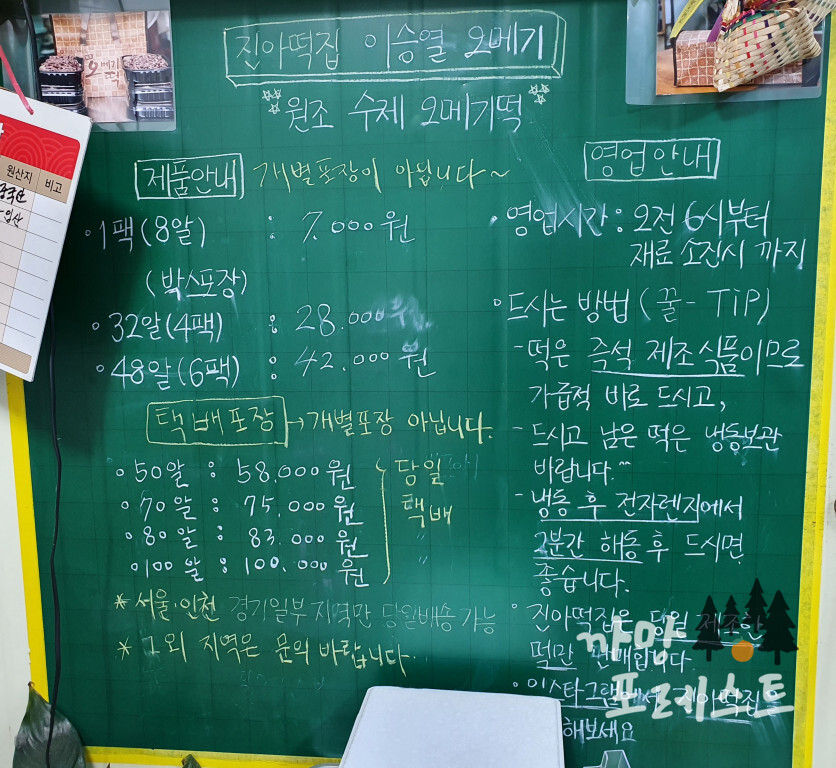 진아떡집 이승열 오메기
원조 수제 오메기떡
제품안내 개별포장이 아닙니다~
1팩(8알) : 7.000원
(박스포장)
32알(4팩) : 28.000원
48알(6팩) : 42.000원
택배포장 → 개별포장 아닙니다.
50알 : 58.000원
70알 : 75.000원
80알 : 83.000원
100알 : 100.000원
당일
택배
* 서울·인천 경기일부지역만 당일배송가능
* 그외 지역은 문의 바랍니다.
영업안내
영업시간 : 오전 6시부터
재료 소진시 까지
드시는 방법 (꿀-TiP)
- 떡은 즉석 제조식품이므로
가급적 바로 드시고,
- 드시고 남은 떡은 냉동보관
바랍니다.^^
- 냉동 후 전자렌지에서
2분간 해동후 드시면
좋습니다.
진아떡집은 당일 제조한
떡만 판매합니다
인스타그램에서 진아떡집
해보세요
원산지 비고
중국산
오메기
떡
까망
포레스트